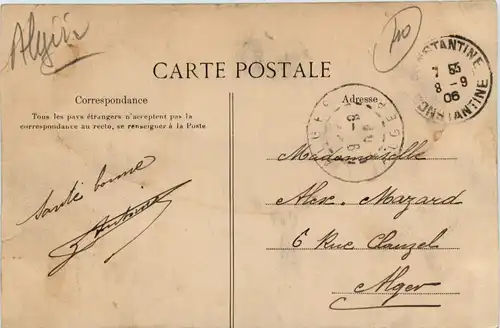 Algérie
40
CONSTANTINE
7 55
8 - 9
06
CONSTANTINE
CARTE POSTALE
Correspondance
Tous les pays étrangers n'acceptent pas la
correspondance au recto, se renseigner à la Poste
Adresse
ALGER
ALGER
Santé bonne
Antoine
Mademoiselle
Alex. Mazard
6 Rue Clauzel
Alger